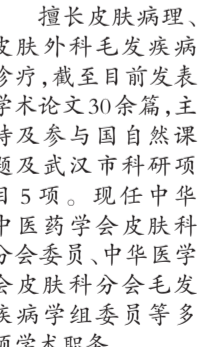 擅长皮肤病理、
皮肤外科毛发疾病
诊疗,截至目前发表
学术论文30余篇,主
持及参与国自然课
题及武汉市科研项
目5项。现任中华
中医药学会皮肤科
分会委员、中华医学
会皮肤科分会毛发
疾病学组委员等多
项学术职务